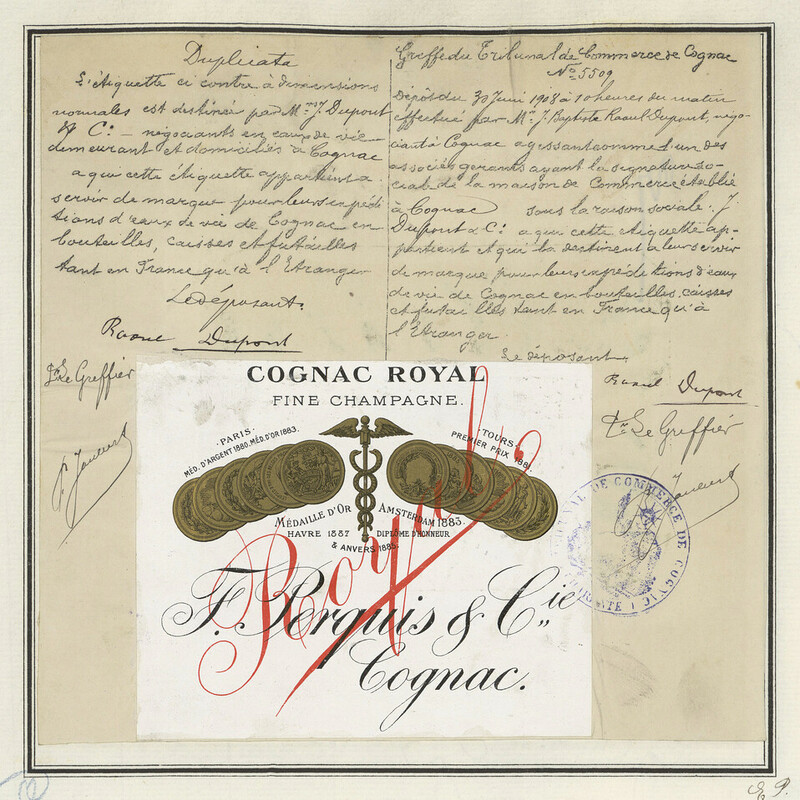 Duplicata
L'étiquette ci contre à dimensions
normales est destinée par Mrs J. Dupont
& Co. — négociants en eaux de vie
demeurant et domiciliés à Cognac
a qui cette étiquette appartient a
servir de marque pour leurs expédi
tions d'eaux de vie de Cognac en
bouteilles, caisses et futailles
tant en France qu'à l'Etranger
Le déposant.
Raoul Dupont
Le Greffier
Greffe du Tribunal de Commerce de Cognac
No 5509
Dépôt du 30 Juin 1908 à 10 heures du matin
effectué par Mr. J. Baptiste Raoul Dupont, négo-
ciant à Cognac agissant comme l'un des
associés gerants ayant la signature so-
ciale de la maison de Commerce établie
à Cognac sous la raison sociale: J.
Dupont & Co. a qui cette étiquette ap-
partient et qui la destinent a leur servir
de marque pour leurs expéditions d'eaux
de vie de Cognac en bouteilles, caisses
et futailles tant en France qu'à
l'Etranger
Le déposant,
Raoul Dupont
Le Greffier
COGNAC ROYAL
FINE CHAMPAGNE.
·PARIS·
MÉD. D'ARGENT 1880, MÉD. D'OR 1883.
·TOURS·
PREMIER PRIX 1881
MÉDAILLE D'OR AMSTERDAM 1883.
HAVRE 1887 DIPLÔME D'HONNEUR
& ANVERS 1885.
Royal
F. Perquis & Cie
Cognac.
TRIBUNAL DE COMMERCE DE COGNAC